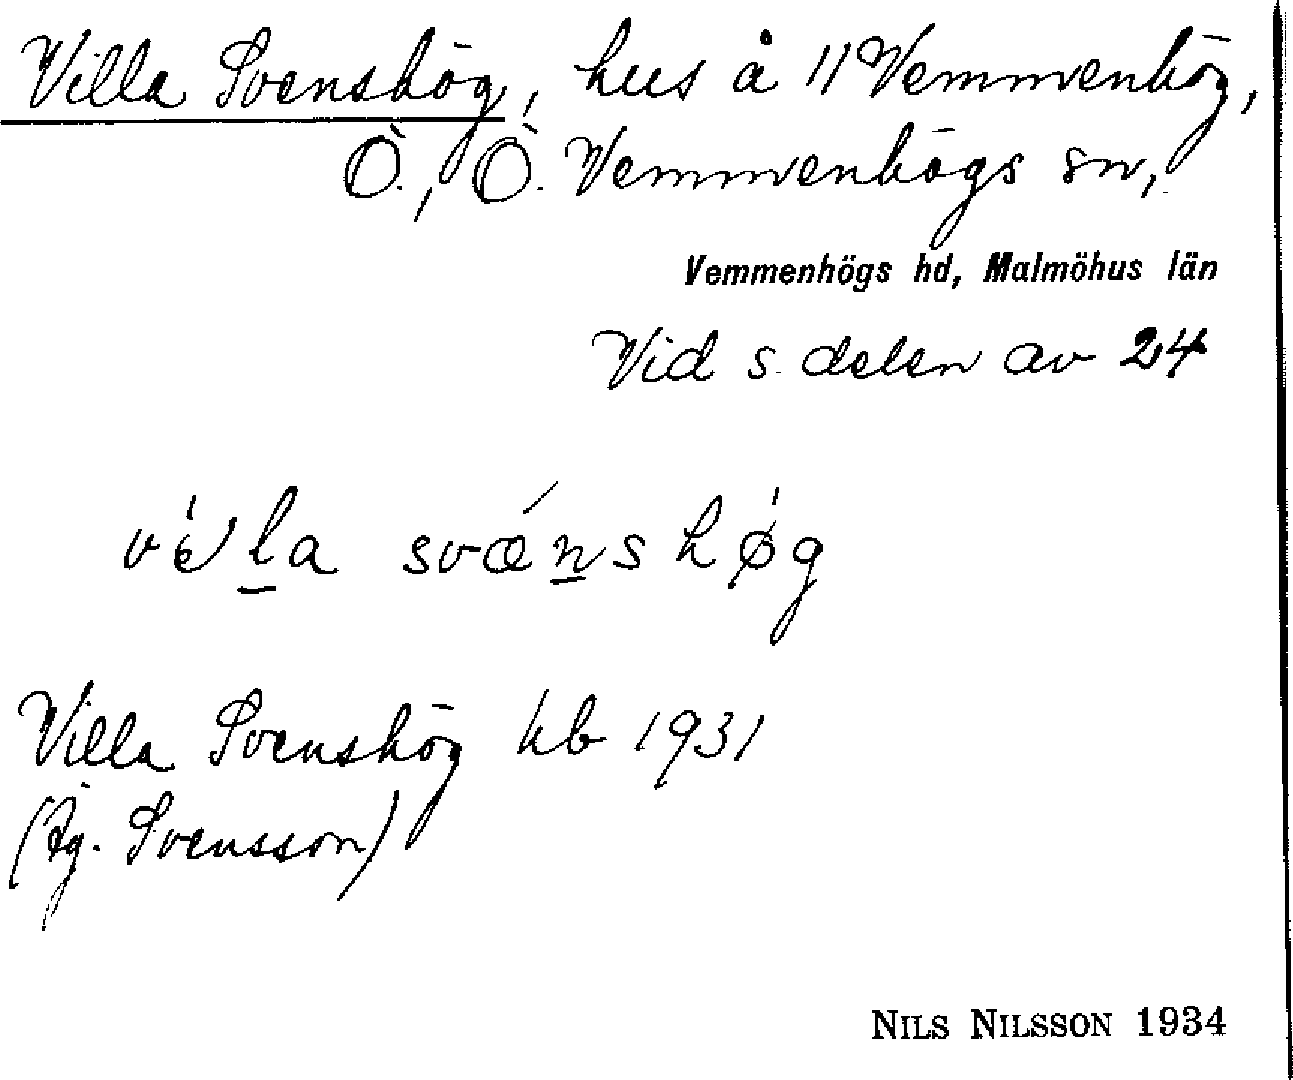 Villa Svenshög, hus å 11 Vemmenhög,
Ö., Ö. Vemmenhögs sn,
Vemmenhögs hd, Malmöhus län
Vid s. delen av 24
svǽnshǿg
Villa Svenshög kb 1931
(Äg. Svensson)
NILS NILSSON 1934